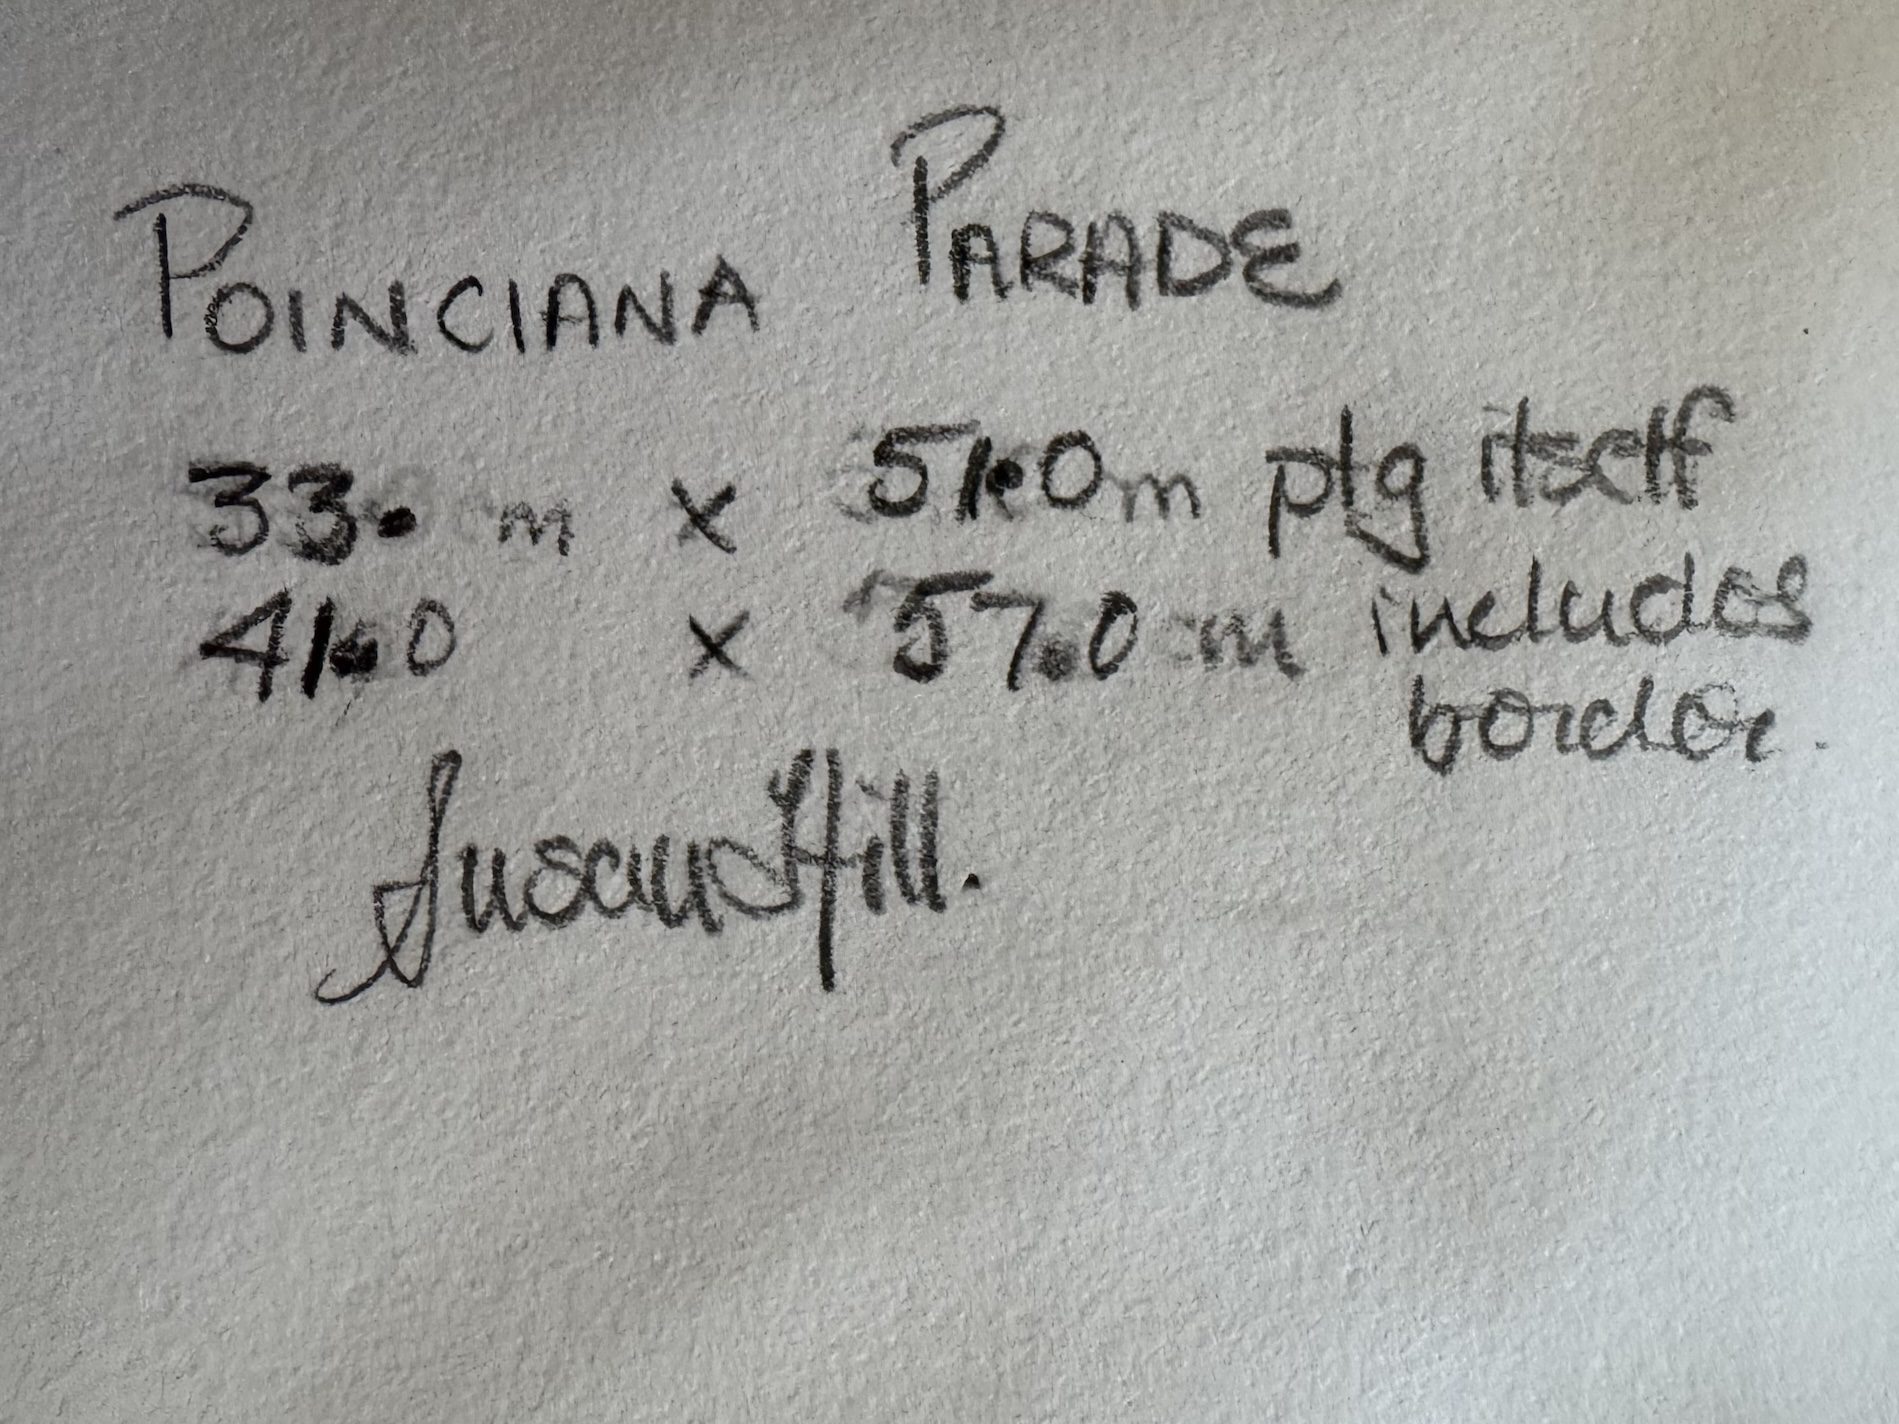 POINCIANA PARADE
33. m x 51.0m ptg itself
41.0 x 57.0 m includes
border.
Susan Hill.